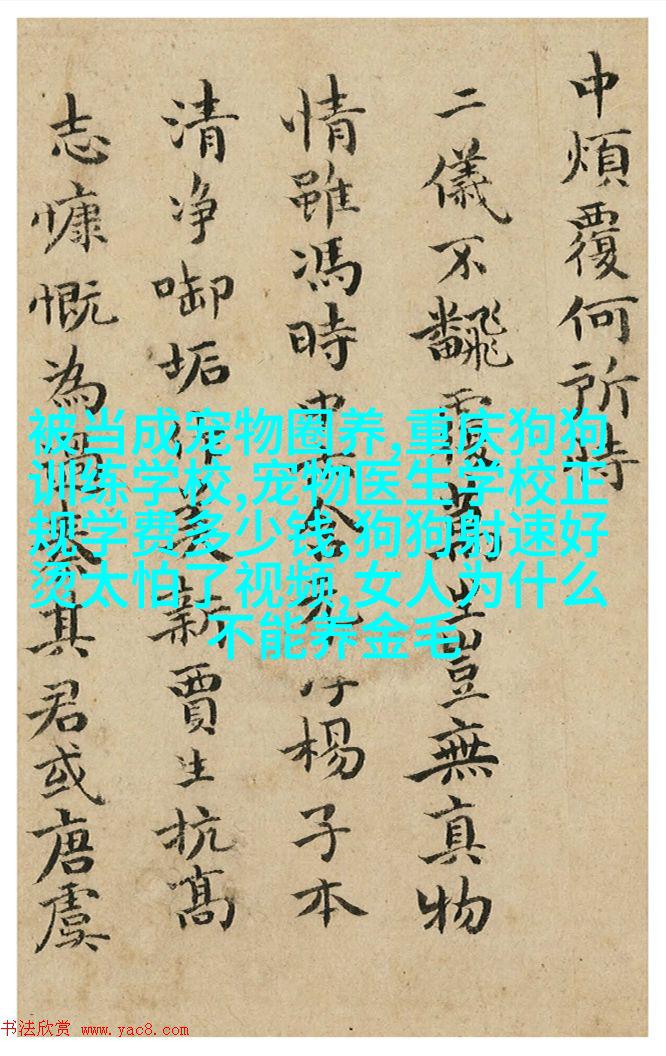 中煩覆何所恃
二儀不飜覆萬生豈無真物
情雖馮時 楊子本
清净啣垢 美新賈生抗髙
志慷慨為 其君或唐虞
被当成宠物圈养,重庆狗狗
训练学校,宠物医生学校正
规学费多少钱,狗狗射速好
烫太怕了视频,女人为什么
不能养金毛
书法欣赏 www.yac8.com